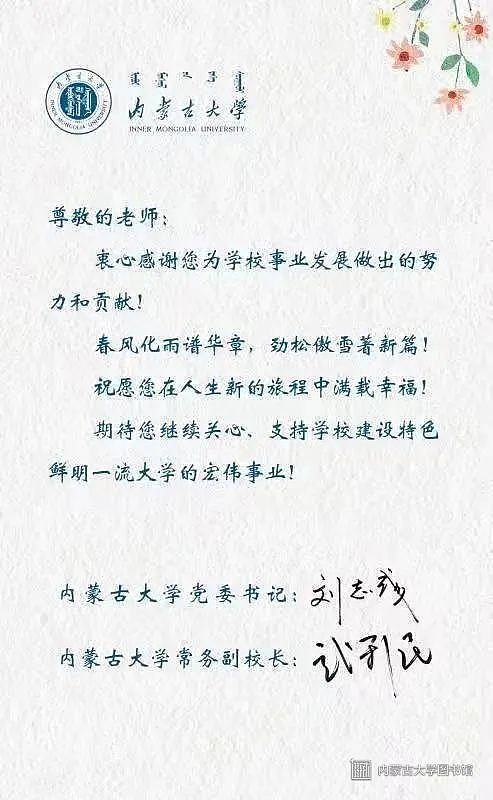 内蒙古大学
INNER MONGOLIA UNIVERSITY
内蒙古大学
INNER MONGOLIA UNIVERSITY
尊敬的老师：
衷心感谢您为学校事业发展做出的努
力和贡献！
春风化雨谱华章，劲松傲雪著新篇！
祝愿您在人生新的旅程中满载幸福！
期待您继续关心、支持学校建设特色
鲜明一流大学的宏伟事业！
内蒙古大学党委书记：刘志彧
内蒙古大学常务副校长：武利民
内蒙古大学图书馆